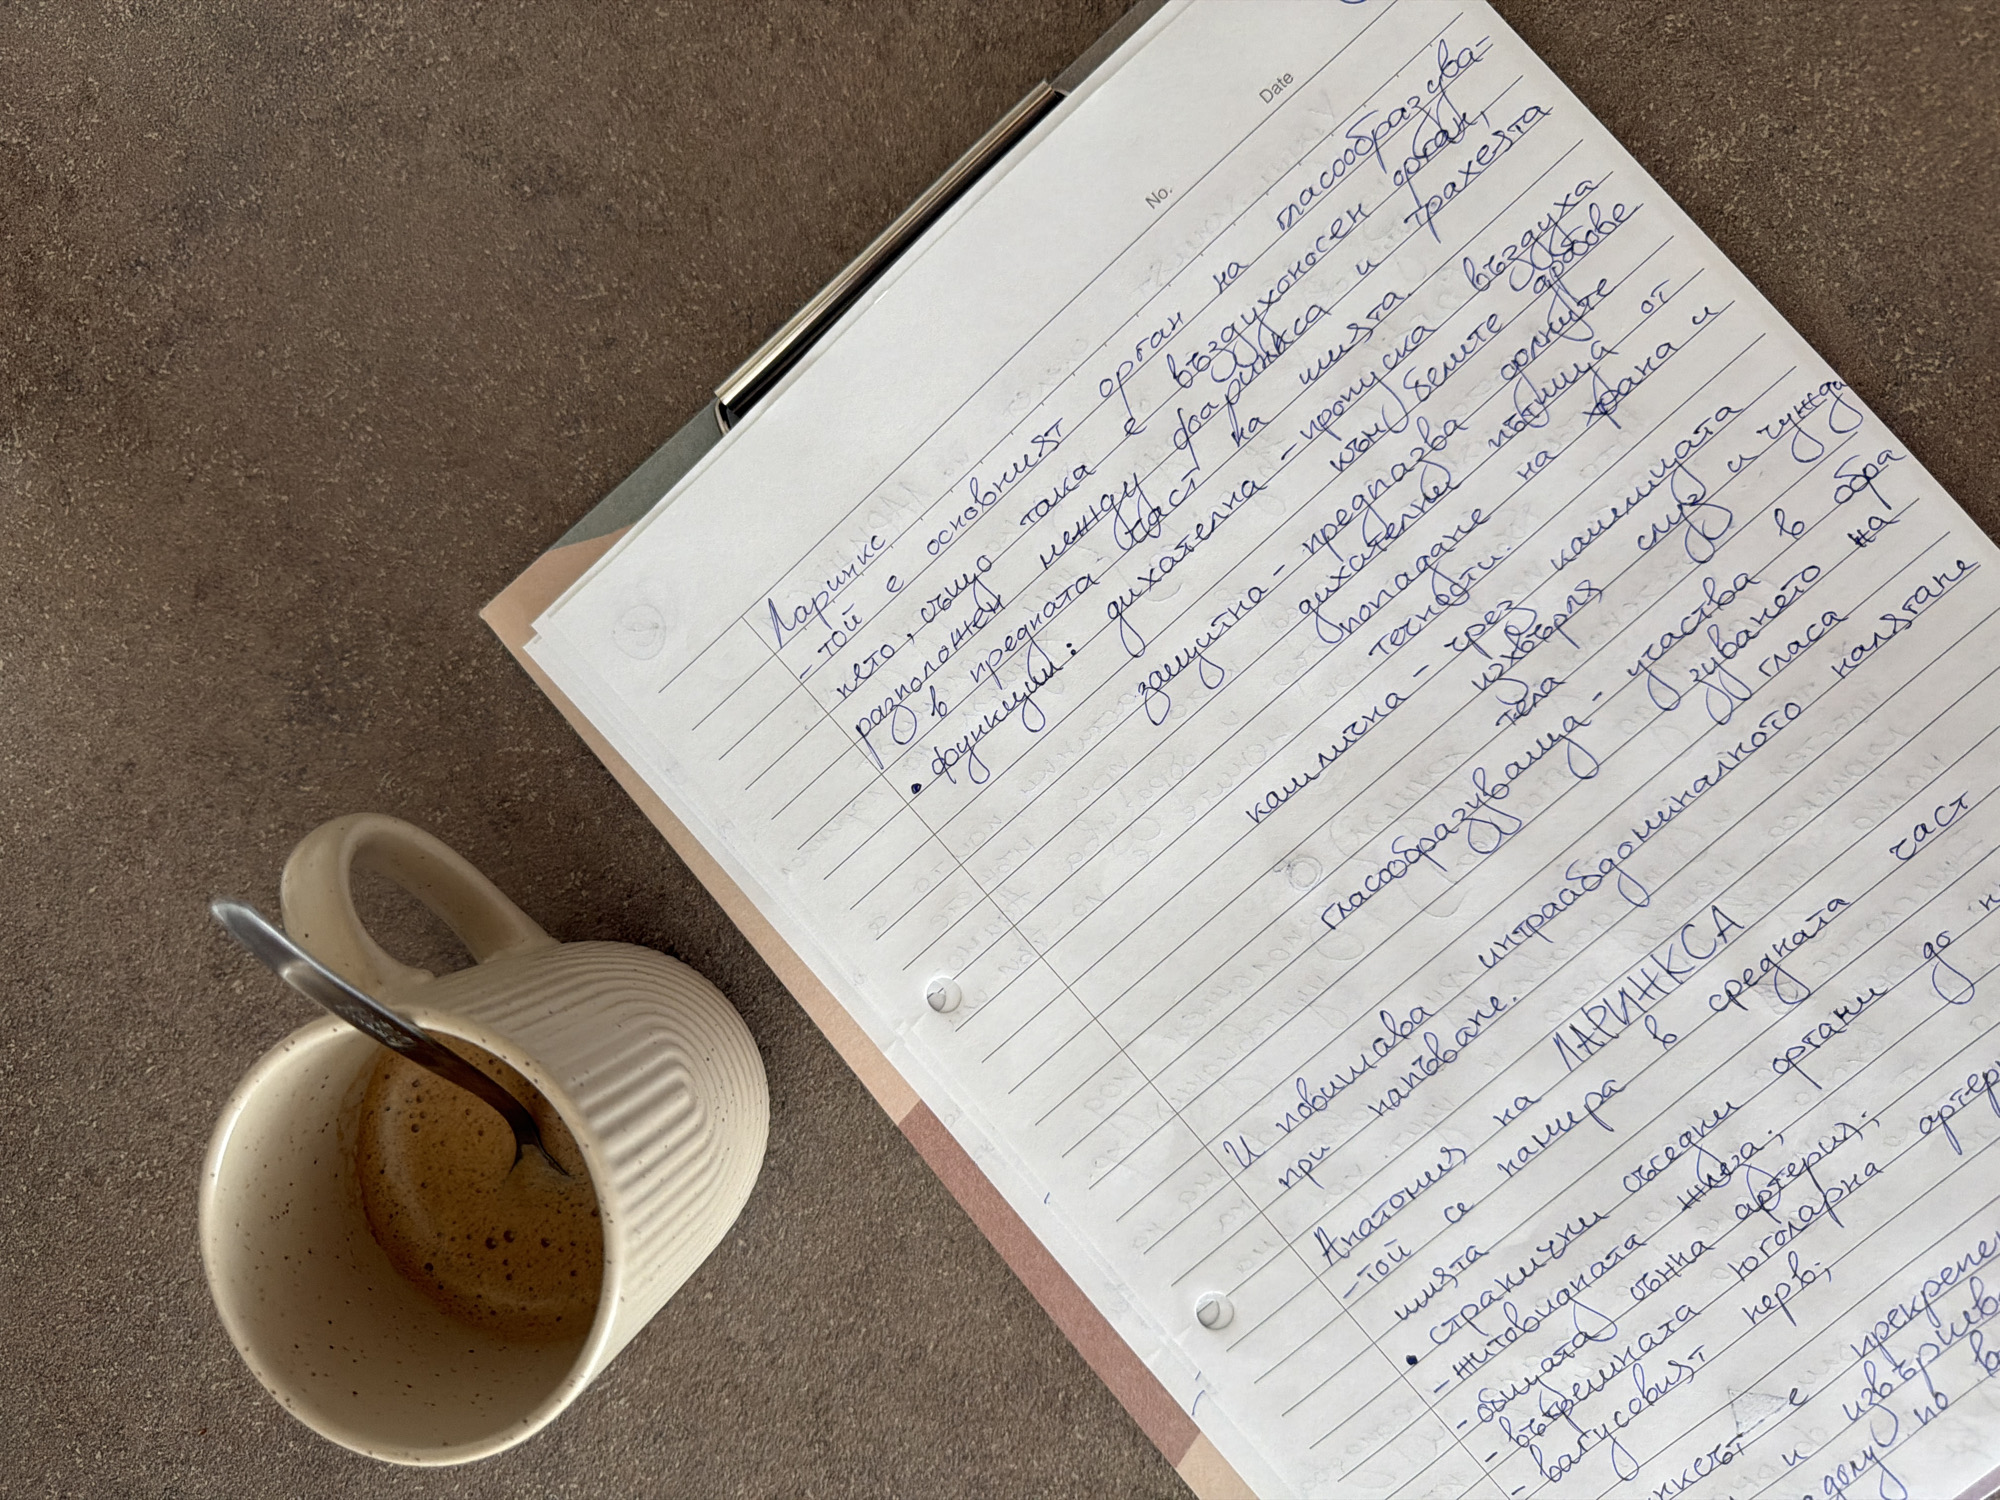 No.
Date
Ларинкс
- той е основният орган на гласообразува-
нето, също така е въздухоносен орган,
разположен между фаринкса и трахеята
в предната част на шията.
• функции: дихателна - пропуска въздуха
към белите дробове
защитна - предпазва долните
дихателни пътища от
попадане на храна и
течности.
кашлична - чрез кашлицата
изхвърля слуз и чужди
тела
гласообразуваща - участва в обра
зуването на
гласа
И повишава интраабдоминалното налягане
при напъване.
Анатомия на ЛАРИНКСА
- той се намира в средната част
шията
• странични съседни органи до
- щитовидната жлеза;
- общата сънна артерия;
- вътрешната югуларна
- вагусовият нерв;
е прекрепен
и
долу по